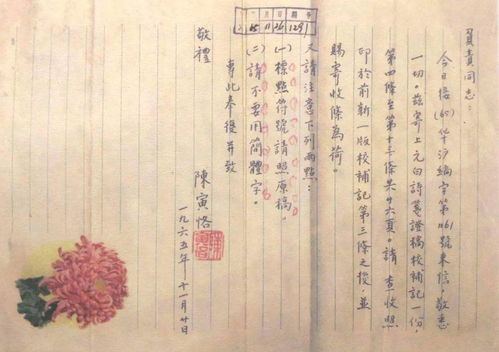 同志:
今日接(65)华沪編字第1161號來信,敬悉
一切。茲寄上元白詩箋證稿校補記一份,
第四條至第十三條共十六頁。請查收照
印於前新一版校補記第三條之後,並
賜寄收條為荷。
又請注意下列兩點:
(一)標點符號請照原稿。
(二)請不要用簡體字。
專此奉復并致
敬禮
陳寅恪
一九六五年十一月廿日